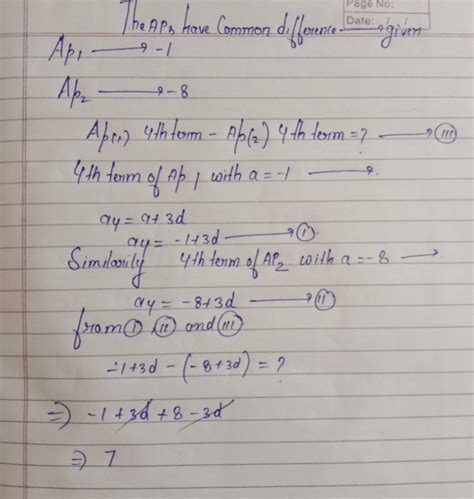 Page No:
Date: / /
The APs have Common difference → given
Ap₁ → -1
Ap₂ → -8
Ap(1) 4th term - Ap(2) 4th term = ? → (III)
4th term of Ap₁ with a = -1 → .
a4 = a + 3d
a4 = -1 + 3d → (I)
Similarily 4th term of AP₂ with a = -8 → .
a4 = -8 + 3d → (II)
from (I) (II) and (III)
-1 + 3d - (-8 + 3d) = ?
⇒ -1 + 3d + 8 - 3d
⇒ 7